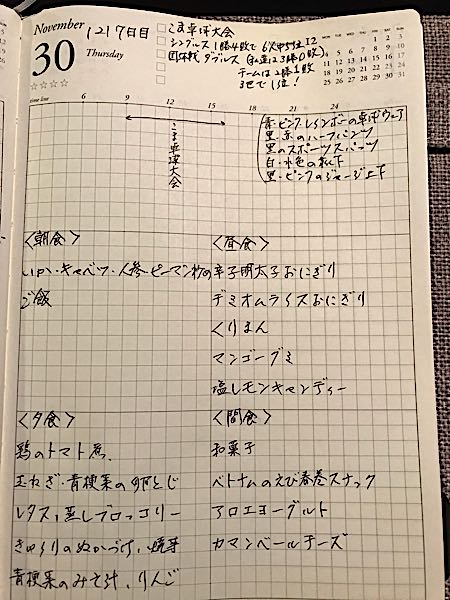 November 1217日目
30 Thursday
こま卓球大会
シングルス1勝4敗で6人中5位
団体戦 ダブルス(私達は3勝0敗)。
チームは2勝1敗
3他で1位!
☆☆☆☆
time line 6 9 12 15 18 21 24
こま卓球大会
青・ピンクレインボーの卓球ウェア
黒・赤のハーフパンツ
黒のスポーツスパッツ
白・水色の靴下
黒・ピンクのジャージ上下
〈朝食〉
しいたけ・キャベツ・人参・ピーマン炒め
ご飯
〈昼食〉
辛子明太子おにぎり
デミオムライスおにぎり
くりまん
マンゴーグミ
塩レモンキャンディー
〈夕食〉
鶏のトマト煮、
玉ねぎ・青梗菜の卵とじ
レタス、蒸しブロッコリー
きゅうりのぬかづけ、焼芋
青梗菜のみそ汁、りんご
〈間食〉
和菓子
ベトナムのえび春巻スナック
アロエヨーグルト
カマンベールチーズ